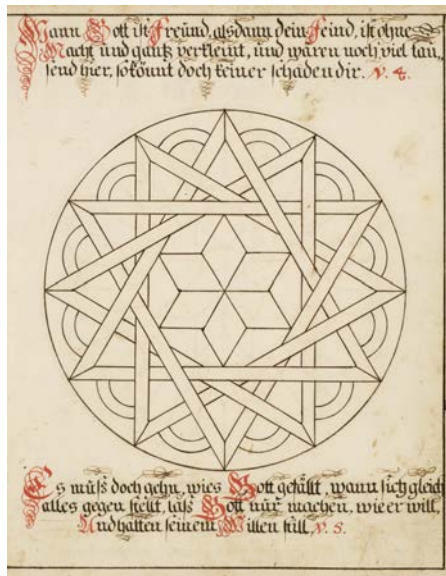 Wann Gott ist Freünd, alsdann dein Feind, ist ohne
Macht und gantz verkleint, und wären noch viel tau„
send hier, so könnt doch keiner schaden dir. N. 4.
Es müß doch gehn, wies Gott gefällt, wann sich gleich
alles gegen stellt, laß Gott nür machen, wie er will,
Und halten seinem Willen still, N. 5.